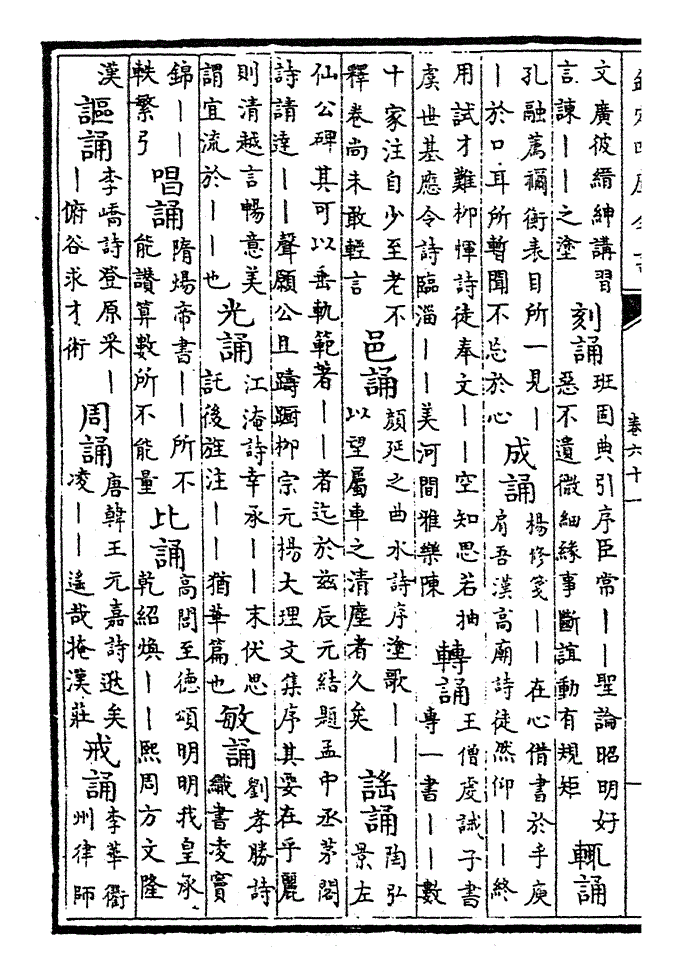 欽定四庫全書
卷六十一
文廣彼縉紳講習言諫||之塗 刻誦 班固典引序臣常||聖論昭明好惡不遺微細緣事斷誼動有規矩 輒誦
孔融薦禰衡表目所一見||於口耳所暫聞不忘於心 成誦 楊修箋||在心借書於手庾肩吾漢高廟詩徒然仰||終
用試才難柳惲詩徒奉文||空知思若抽虞世基應令詩臨淄||美河間雅樂陳 轉誦 王僧虔誡子書專一書||數
十家注自少至老不釋卷尚未敢輕言 邑誦 顔延之曲水詩序塗歌||以望屬車之清塵者久矣 謡誦 陶弘景左
仙公碑其可以垂軌範著||者迄於兹辰元結題孟中丞茅閣詩請達||聲願公且躊躇柳宗元楊大理文集序其要在乎麗
則清越言暢意美謂宜流於||也 光誦 江淹詩幸承||末伏思託後旌注||猶華篇也 敏誦 劉孝勝詩織書凌竇
錦||軼繁弓 唱誦 隋煬帝書||所不能讚算數所不能量 比誦 高閭至德頌明明我皇承乾紹煥||熙周方文隆
漢 謳誦 李嶠詩登原采||俯谷求才術 周誦 唐韓王元嘉詩逖矣凌||遙哉掩漢莊 戒誦 李華衢州律師